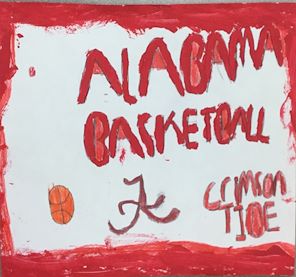 ALABAMA
BASKETBALL
A
CRIMSON
TIDE